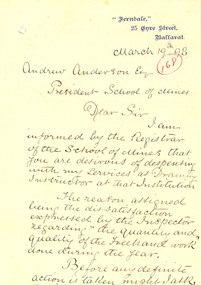 "Ferndale,"
25 Eyre Street,
Ballarat
March 19th 98
168
Andrew Anderson Esq
President School of Mines
Dear Sir
I am
informed by the Registrar
of the School of Mines that
you are desirous of dispensing
with my services as Drawing
Instructor at that Institution
The reason assigned
being the dissatisfaction
expressed by the Inspector
regarding "the quantity and
quality of the Freehand work"
done during the year.
Before any definite
action is taken might I ask